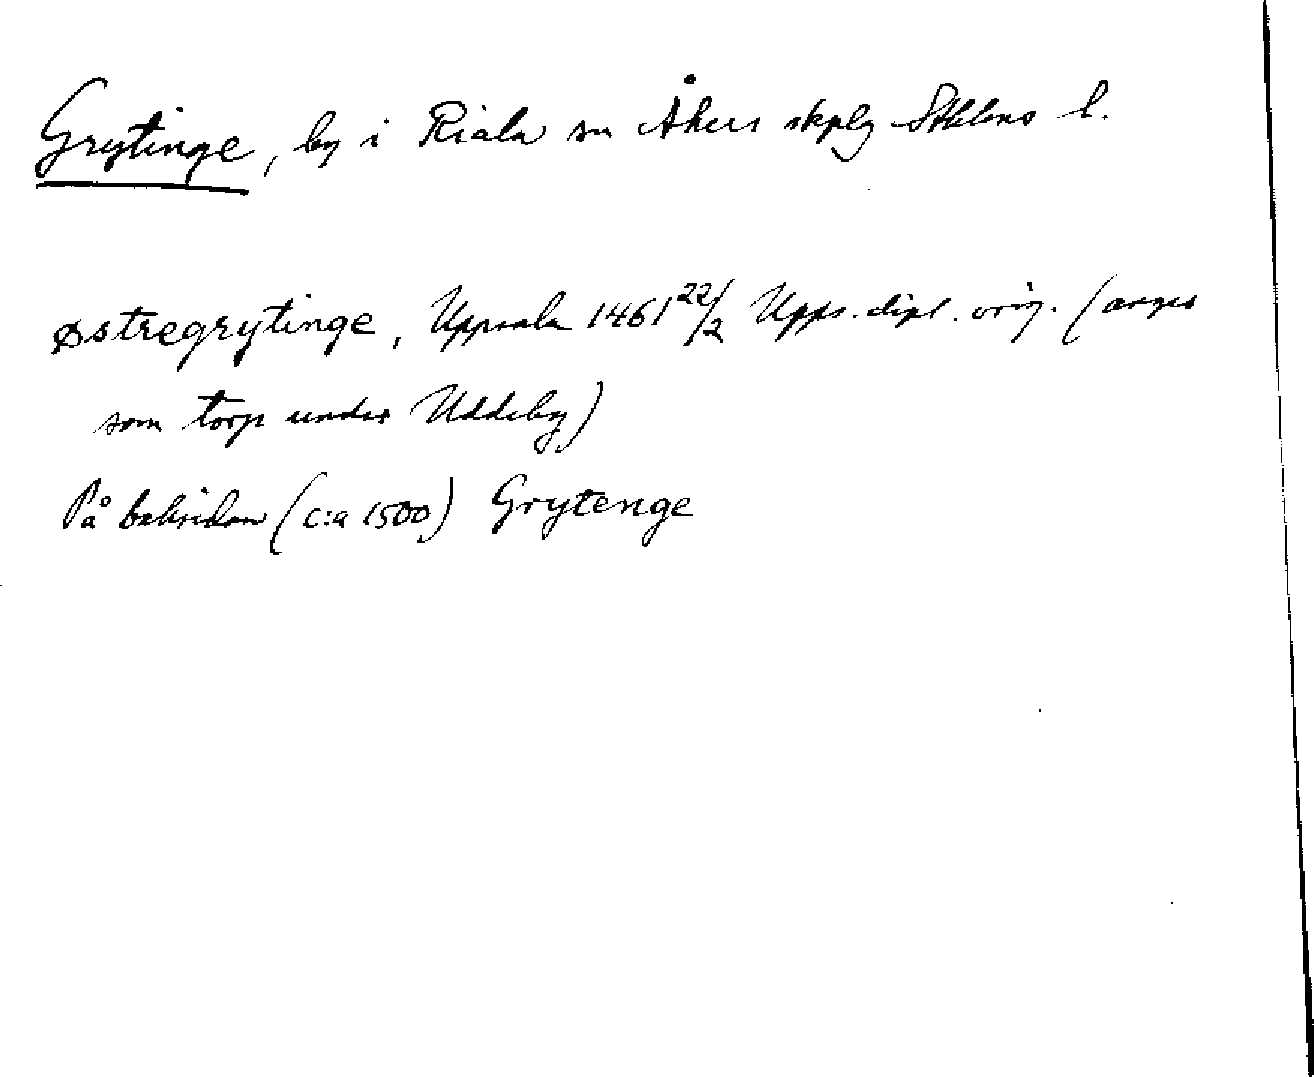 Grytinge, by i Riala sn Åkers skplg Sthlms l.
østregrytinge, Uppsala 1461 22/2 Upps. dipl. orig. (anges
som torp under Uddeby)
På baksidan (c:a 1500) Grytenge